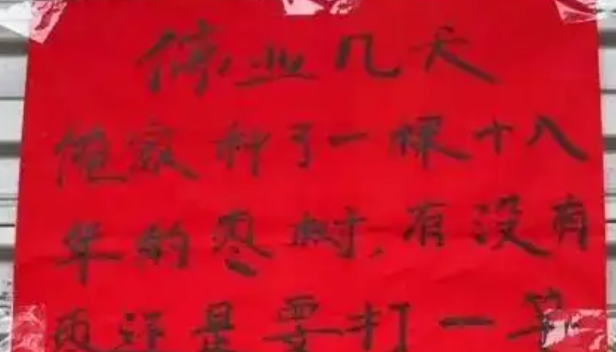 停业几天
俺家种了一棵十八
年的枣树,有没有
枣还是要打一竿